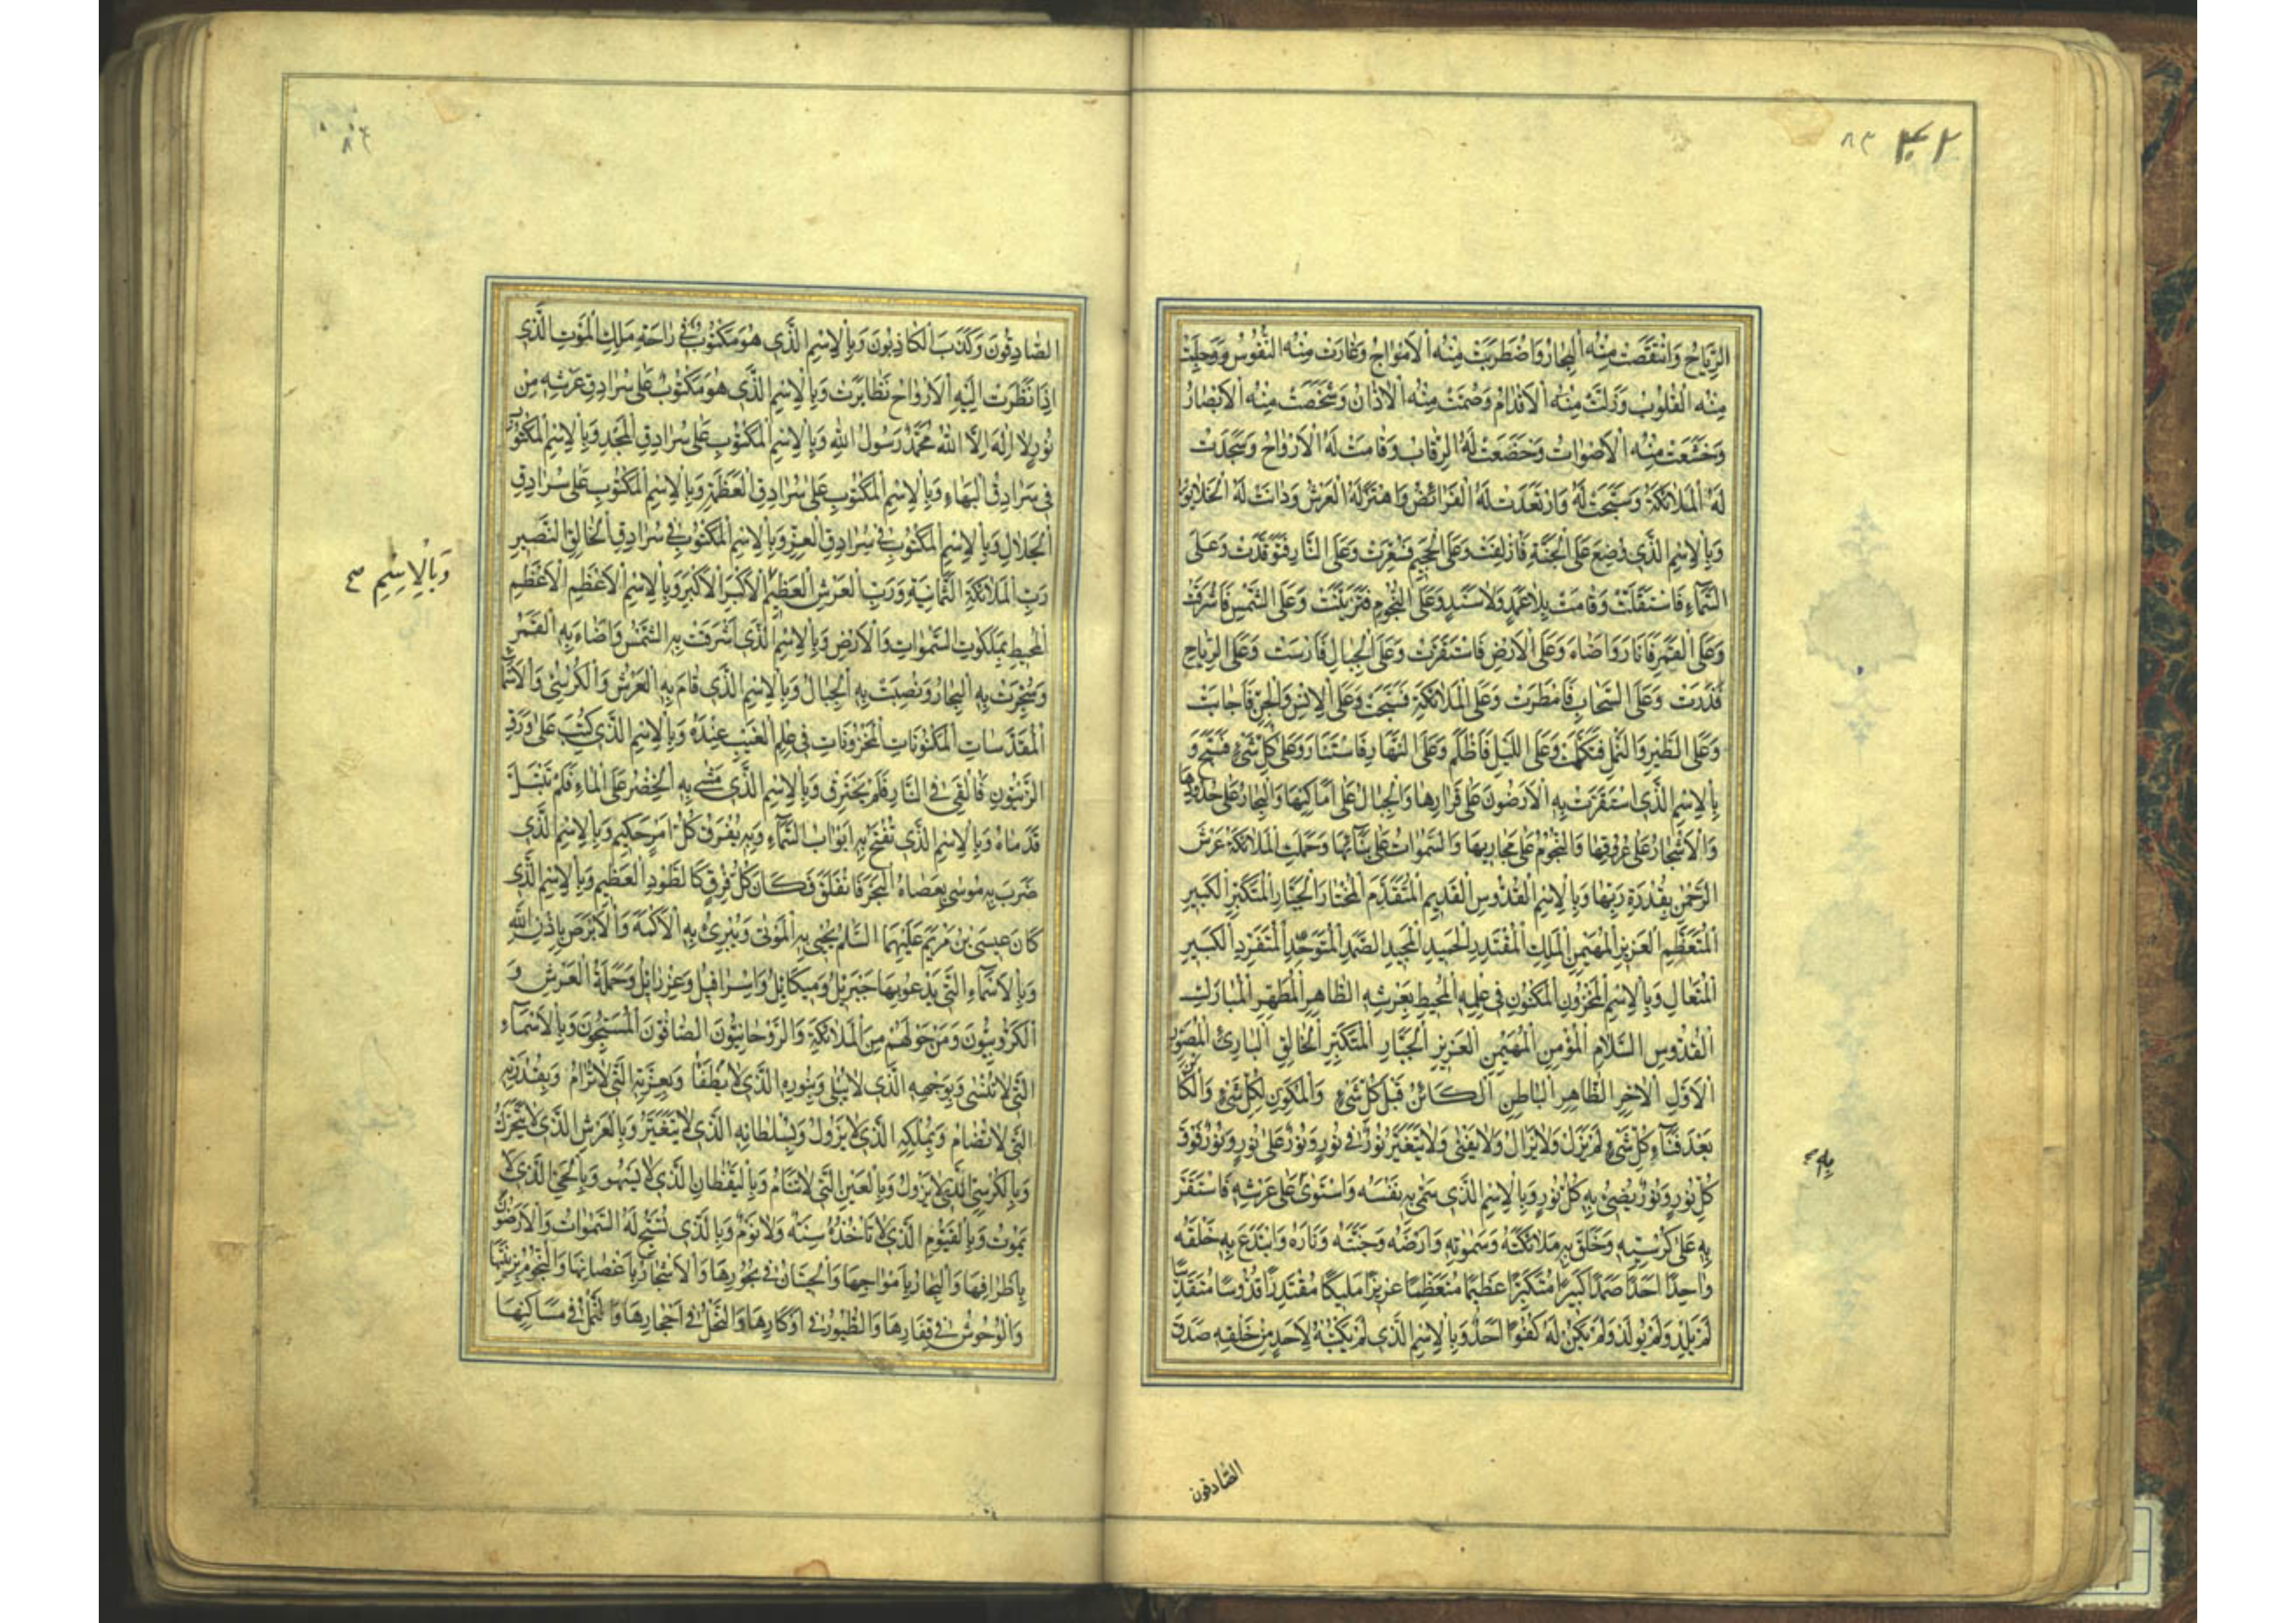 ۴۲
۸۳
الرِّيَاحُ وَانْتَقَصَتْ مِنْهُ الْبِحَارُ وَاضْطَرَبَتْ مِنْهُ الْاَمْوَاجُ وَغَارَتْ مِنْهُ النُّفُوسُ وَوَجِلَتْ
مِنْهُ الْقُلُوبُ وَزَلَّتْ مِنْهُ الْاَقْدَامُ وَصُمَّتْ مِنْهُ الْاٰذَانُ وَشَخَصَتْ مِنْهُ الْاَبْصَارُ
وَخَشَعَتْ مِنْهُ الْاَصْوَاتُ وَخَضَعَتْ لَهُ الرِّقَابُ وَقَامَتْ لَهُ الْاَرْوَاحُ وَسَجَدَتْ
لَهُ الْمَلٰائِكَةُ وَسَبَّحَتْ لَهُ وَارْتَعَدَتْ لَهُ الْفَرَائِصُ وَاهْتَزَّ لَهُ الْعَرْشُ وَدَانَتْ لَهُ الْخَلٰايِقُ
وَبِالْاِسْمِ الَّذِي وُضِعَ عَلَى الْجَنَّةِ فَاُزْلِفَتْ وَعَلَى الْجَحِيمِ فَسُعِّرَتْ وَعَلَى النَّارِ فَتَوَقَّدَتْ وَعَلَى
السَّمَاءِ فَاسْتَقَلَّتْ وَقَامَتْ بِلٰا عَمَدٍ وَلٰا سَنَدٍ وَعَلَى النُّجُومِ فَتَزَيَّنَتْ وَعَلَى الشَّمْسِ فَاَشْرَقَتْ
وَعَلَى الْقَمَرِ فَاَنَارَ وَاَضَاءَ وَعَلَى الْاَرْضِ فَاسْتَقَرَّتْ وَعَلَى الْجِبَالِ فَاَرْسَتْ وَعَلَى الرِّيَاحِ
فَذَرَّتْ وَعَلَى السَّحَابِ فَاَمْطَرَتْ وَعَلَى الْمَلٰائِكَةِ فَسَبَّحَتْ وَعَلَى الْاِنْسِ وَالْجِنِّ فَاَجَابَتْ
وَعَلَى الطَّيْرِ وَالنَّمْلِ فَتَكَلَّمَتْ وَعَلَى اللَّيْلِ فَاَظْلَمَ وَعَلَى النَّهَارِ فَاسْتَنَارَ وَعَلَى كُلِّ شَيْءٍ فَسَبَّحَ وَ
بِالْاِسْمِ الَّذِي اسْتَقَرَّتْ بِهِ الْاَرَضُونَ عَلَى قَرَارِهَا وَالْجِبَالُ عَلَى اَمَاكِنِهَا وَالْبِحَارُ عَلَى حُدُودِهَا
وَالْاَشْجَارُ عَلَى عُرُوقِهَا وَالنُّجُومُ عَلَى مَجَارِيهَا وَالسَّمٰوَاتُ عَلَى بِنَائِهَا وَحَمَلَتِ الْمَلٰائِكَةُ عَرْشَ
الرَّحْمٰنِ بِقُدْرَةِ رَبِّهَا وَبِالْاِسْمِ الْقُدُّوسِ الْقَدِيمِ الْمُتَقَدِّمِ الْمُخْتَارِ الْجَبَّارِ الْمُتَكَبِّرِ الْكَبِيرِ
الْمُتَعَظِّمِ الْعَزِيزِ الْمُهَيْمِنِ الْمَلِكِ الْمُقْتَدِرِ الْحَمِيدِ الْمَجِيدِ الصَّمَدِ الْمُتَوَحِّدِ الْمُتَفَرِّدِ الْكَبِيرِ
الْمُتَعَالِ وَبِالْاِسْمِ الْمَخْزُونِ الْمَكْنُونِ فِي عِلْمِهِ الْمُحِيطِ بِعَرْشِهِ الطَّاهِرِ الْمُطَهَّرِ الْمُبَارَكِ
الْقُدُّوسِ السَّلٰامِ الْمُؤْمِنِ الْمُهَيْمِنِ الْعَزِيزِ الْجَبَّارِ الْمُتَكَبِّرِ الْخَالِقِ الْبَارِئِ الْمُصَوِّرِ
الْاَوَّلِ الْاٰخِرِ الظَّاهِرِ الْبَاطِنِ الْكَائِنِ قَبْلَ كُلِّ شَيْءٍ وَالْمُكَوِّنِ لِكُلِّ شَيْءٍ وَالْكَائِنِ
بَعْدَ فَنَاءِ كُلِّ شَيْءٍ لَمْ يَزَلْ وَلٰا يَزَالُ وَلٰا يَفْنَى وَلٰا يَتَغَيَّرُ نُورٌ فِي نُورٍ وَنُورٌ عَلَى نُورٍ وَنُورٌ فَوْقَ
كُلِّ نُورٍ وَنُورٌ يُضِيءُ بِهِ كُلُّ نُورٍ وَبِالْاِسْمِ الَّذِي سَمَّى بِهِ نَفْسَهُ وَاسْتَوَى عَلَى عَرْشِهِ فَاسْتَقَرَّ
بِهِ عَلَى كُرْسِيِّهِ وَخَلَقَ بِهِ مَلٰائِكَتَهُ وَسَمٰوَاتِهِ وَاَرْضَهُ وَجَنَّتَهُ وَنَارَهُ وَابْتَدَعَ بِهِ خَلْقَهُ
وَاحِدًا اَحَدًا صَمَدًا كَبِيرًا مُتَكَبِّرًا عَظِيمًا مُتَعَظِّمًا عَزِيزًا مَلِيكًا مُقْتَدِرًا قُدُّوسًا مُتَقَدِّسًا
لَمْ يَلِدْ وَلَمْ يُولَدْ وَلَمْ يَكُنْ لَهُ كُفُوًا اَحَدٌ وَبِالْاِسْمِ الَّذِي لَمْ يَكْتُبْهُ لِاَحَدٍ مِنْ خَلْقِهِ صَدَقَ
الصَّادِقُونَ
۸۴
الصَّادِقُونَ وَكَذَبَ الْكَاذِبُونَ وَبِالْاِسْمِ الَّذِي هُوَ مَكْتُوبٌ فِي رَاحَةِ مَلَكِ الْمَوْتِ الَّذِي
اِذَا نَظَرَتْ اِلَيْهِ الْاَرْوَاحُ تَطَايَرَتْ وَبِالْاِسْمِ الَّذِي هُوَ مَكْتُوبٌ عَلَى سُرَادِقِ عَرْشِهِ مِنْ
نُورٍ لٰا اِلٰهَ اِلَّا اللهُ مُحَمَّدٌ رَسُولُ اللهِ وَبِالْاِسْمِ الْمَكْتُوبِ عَلَى سُرَادِقِ الْمَجْدِ وَبِالْاِسْمِ الْمَكْتُوبِ
فِي سُرَادِقِ الْبَهَاءِ وَبِالْاِسْمِ الْمَكْتُوبِ عَلَى سُرَادِقِ الْعَظَمَةِ وَبِالْاِسْمِ الْمَكْتُوبِ عَلَى سُرَادِقِ
الْجَلٰالِ وَبِالْاِسْمِ الْمَكْتُوبِ فِي سُرَادِقِ الْعِزِّ وَبِالْاِسْمِ الْمَكْتُوبِ فِي سُرَادِقِ الْخَالِقِ النَّصِيرِ
وَبِالْاِسْمِ
رَبِّ الْمَلٰائِكَةِ الثَّمَانِيَةِ وَرَبِّ الْعَرْشِ الْعَظِيمِ الْاَكْبَرِ الْاَكْبَرِ وَبِالْاِسْمِ الْاَعْظَمِ الْاَعْظَمِ
الْمُحِيطِ بِمَلَكُوتِ السَّمٰوَاتِ وَالْاَرْضِ وَبِالْاِسْمِ الَّذِي اَشْرَقَتْ بِهِ الشَّمْسُ وَاَضَاءَ بِهِ الْقَمَرُ
وَسُجِّرَتْ بِهِ الْبِحَارُ وَنُصِبَتْ بِهِ الْجِبَالُ وَبِالْاِسْمِ الَّذِي قَامَ بِهِ الْعَرْشُ وَالْكُرْسِيُّ وَالْاَسْمَاءِ
الْمُقَدَّسَاتِ الْمَكْنُونَاتِ الْمَخْزُونَاتِ فِي عِلْمِ الْغَيْبِ عِنْدَهُ وَبِالْاِسْمِ الَّذِي كُتِبَ عَلَى وَرَقِ
الزَّيْتُونِ فَاُلْقِيَ فِي النَّارِ فَلَمْ يَحْتَرِقْ وَبِالْاِسْمِ الَّذِي مَشَى بِهِ الْخِضْرُ عَلَى الْمَاءِ فَلَمْ تَبْتَلَّ
قَدَمَاهُ وَبِالْاِسْمِ الَّذِي تُفْتَحُ بِهِ اَبْوَابُ السَّمَاءِ وَبِهِ يُفْرَقُ كُلُّ اَمْرٍ حَكِيمٍ وَبِالْاِسْمِ الَّذِي
ضَرَبَ بِهِ مُوسَى بِعَصَاهُ الْبَحْرَ فَانْفَلَقَ فَكَانَ كُلُّ فِرْقٍ كَالطَّوْدِ الْعَظِيمِ وَبِالْاِسْمِ الَّذِي
كَانَ عِيسَى بْنُ مَرْيَمَ عَلَيْهِمَا السَّلٰمُ يُحْيِي بِهِ الْمَوْتَى وَيُبْرِئُ بِهِ الْاَكْمَهَ وَالْاَبْرَصَ بِاِذْنِ اللهِ
وَبِالْاَسْمَاءِ الَّتِي يَدْعُو بِهَا جَبْرَئِيلُ وَمِيكَائِيلُ وَاِسْرَافِيلُ وَعِزْرَائِيلُ وَحَمَلَةُ الْعَرْشِ وَ
الْكَرُّوبِيُّونَ وَمَنْ حَوْلَهُمْ مِنَ الْمَلٰائِكَةِ وَالرَّوْحَانِيُّونَ الصَّافُّونَ الْمُسَبِّحُونَ وَبِالْاَسْمَاءِ
الَّتِي لٰا تُنْسَى وَبِوَجْهِهِ الَّذِي لٰا يَبْلَى وَبِنُورِهِ الَّذِي لٰا يُطْفَأُ وَبِعِزَّتِهِ الَّتِي لٰا تُرَامُ وَبِقُدْرَتِهِ
الَّتِي لٰا تُضَامُ وَبِمُلْكِهِ الَّذِي لٰا يَزُولُ وَبِسُلْطَانِهِ الَّذِي لٰا يَتَغَيَّرُ وَبِالْعَرْشِ الَّذِي لٰا يَتَحَرَّكُ
وَبِالْكُرْسِيِّ الَّذِي لٰا يَزُولُ وَبِالْعَيْنِ الَّتِي لٰا تَنَامُ وَبِالْيَقْظَانِ الَّذِي لٰا يَسْهُو وَبِالْحَيِّ الَّذِي لٰا
يَمُوتُ وَبِالْقَيُّومِ الَّذِي لٰا تَاْخُذُهُ سِنَةٌ وَلٰا نَوْمٌ وَبِالَّذِي تُسَبِّحُ لَهُ السَّمٰوَاتُ وَالْاَرَضُونَ
بِاَطْرَافِهَا وَالْبِحَارُ بِاَمْوَاجِهَا وَالْحِيتَانُ فِي بُحُورِهَا وَالْاَشْجَارُ بِاَغْصَانِهَا وَالنُّجُومُ بِزِينَتِهَا
وَالْوُحُوشُ فِي قِفَارِهَا وَالطُّيُورُ فِي اَوْكَارِهَا وَالنَّحْلُ فِي اَحْجَارِهَا وَالنَّمْلُ فِي مَسَاكِنِهَا